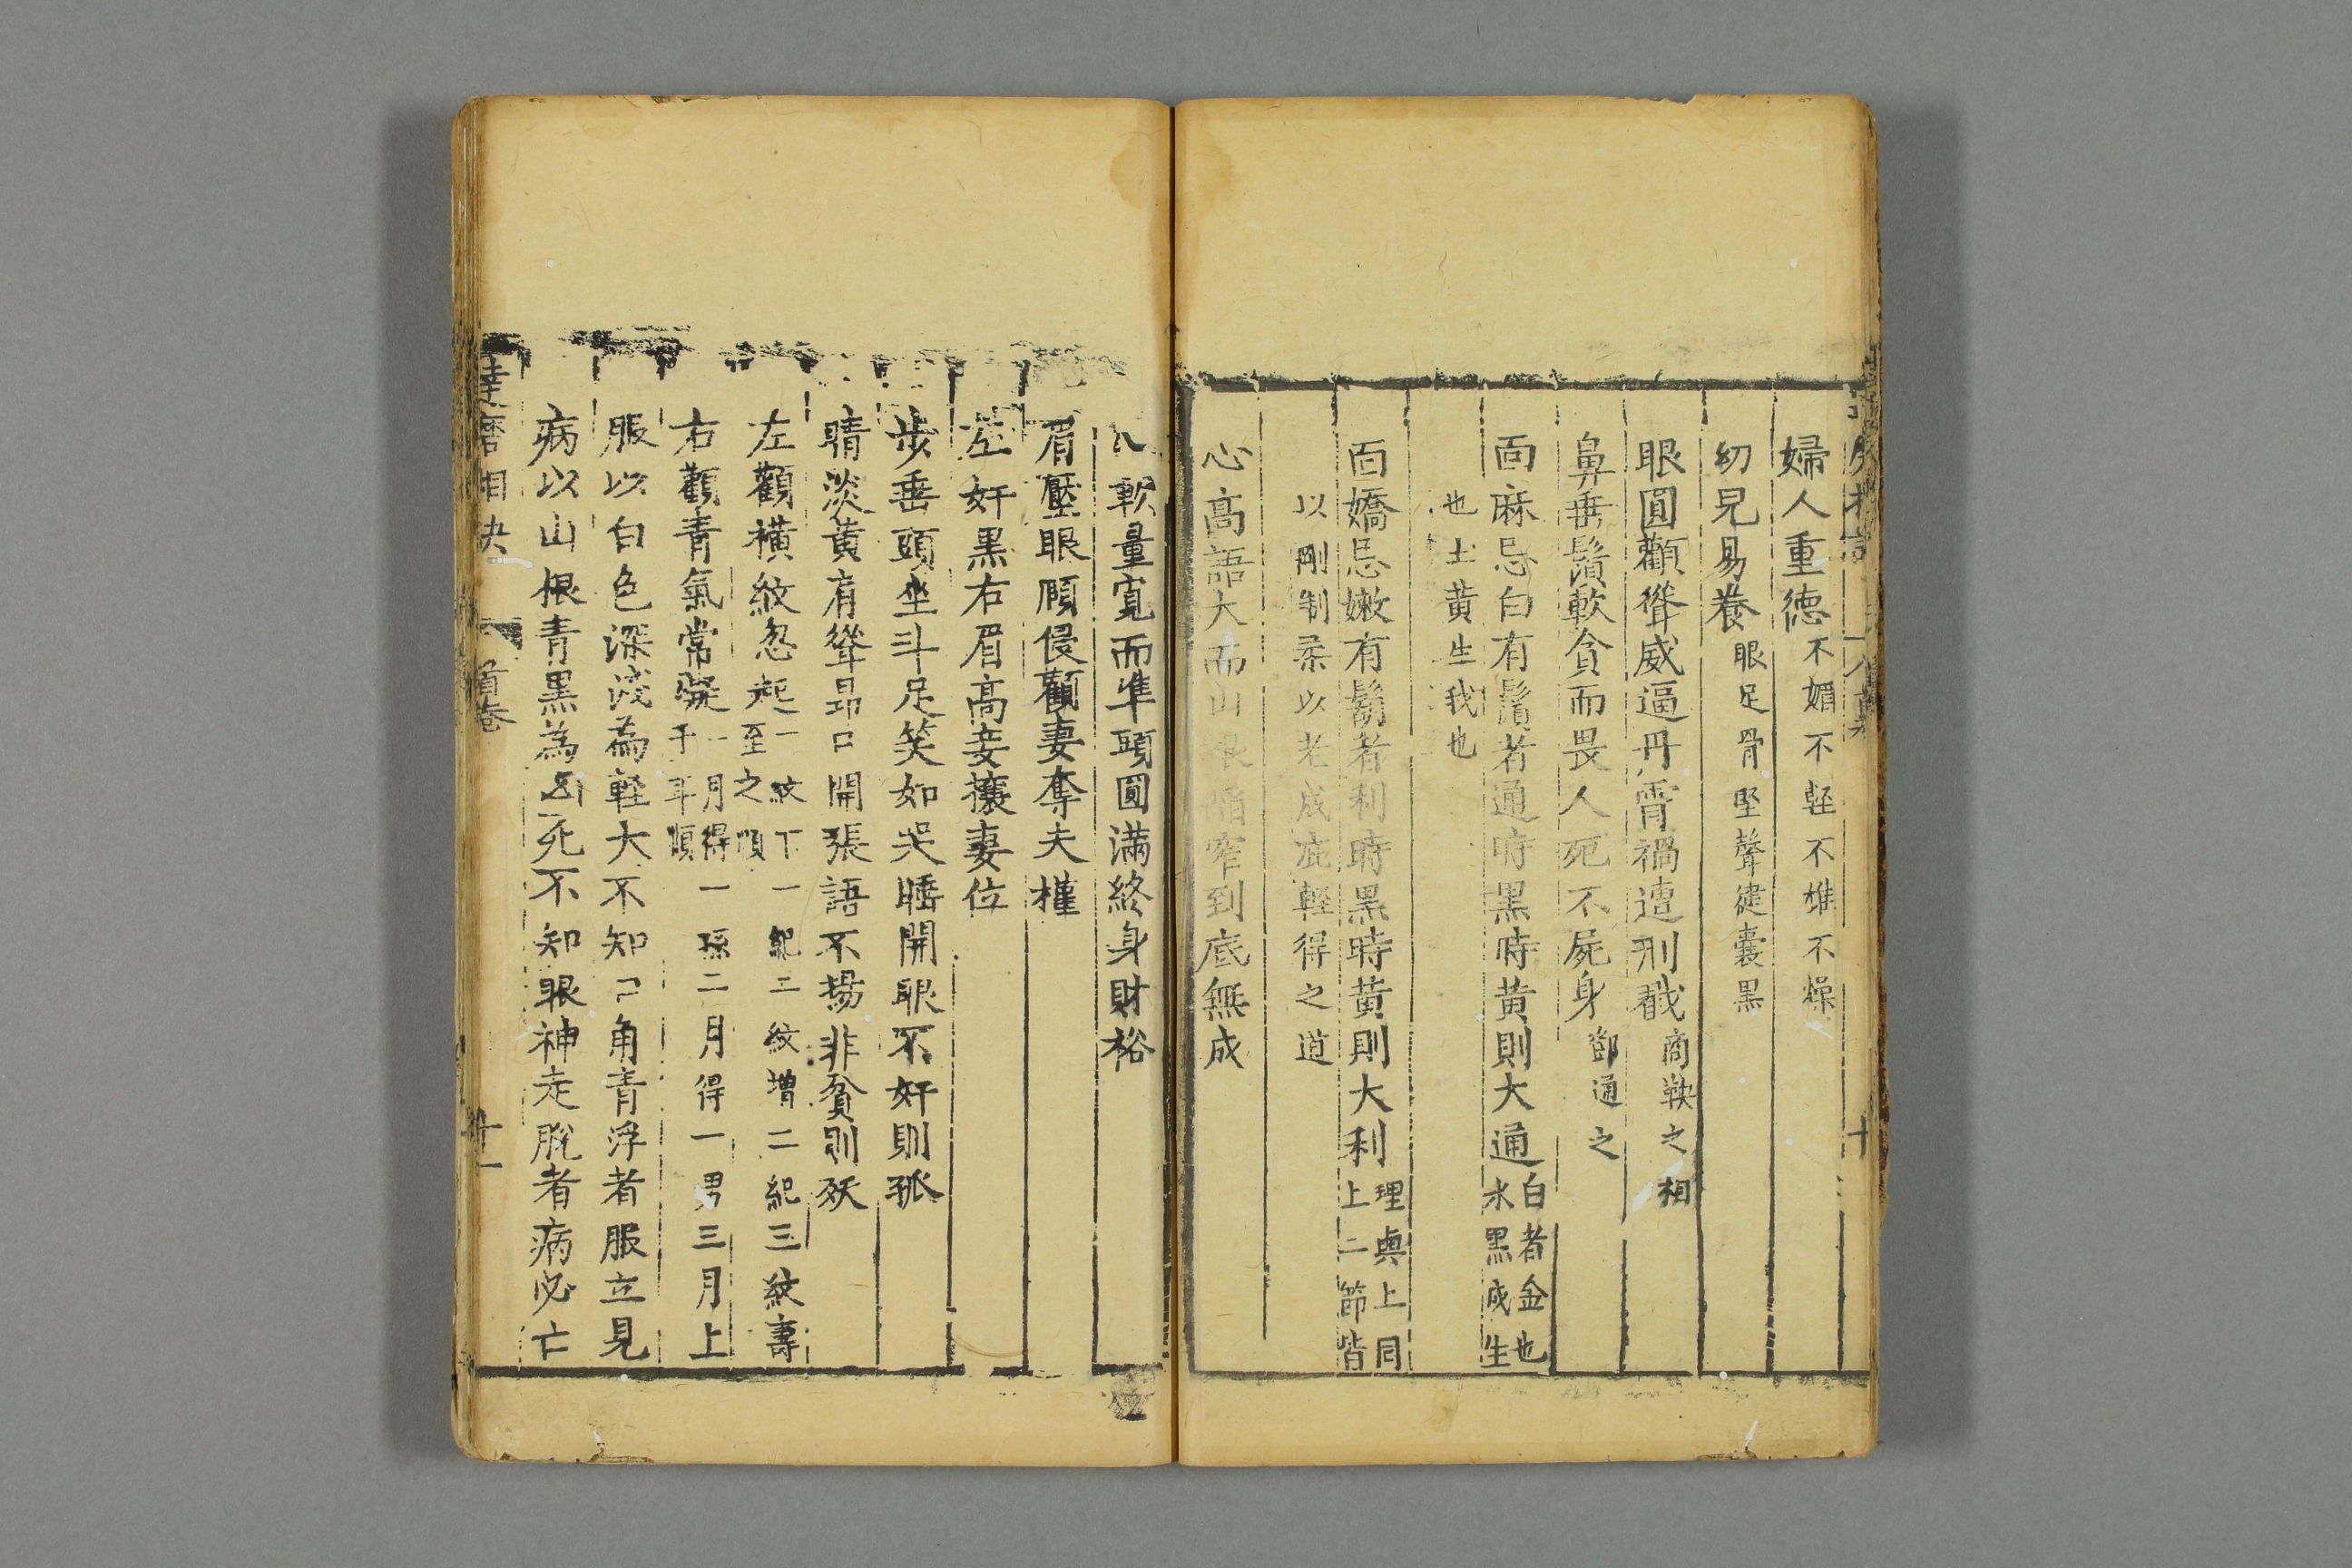 婦人重徳不媚不輕不雄不燥
幼兒易養眼足骨堅聲健囊黒
眼圓顴聳威逼丹霄禍遭刑戮商鞅之相
鼻垂鬚軟貪而畏人死不屍身鄧通之
面麻忌白有鬚者通時黒時黃則大通白者金也水黒成生
也土黃生我也
面嬌忌嫩有鬍者利時黒時黃則大利理與上同上二節皆
以剛制柔以老成庇輕得之道
心高語大而山根陷窄到底無成
軟量寬而準頭圓滿終身財裕
眉壓眼顧侵顴妻奪夫權
左奸黒右眉高妾攘妻位
步垂頭坐斗足笑如哭睡開眼不奸則孤
睛淡黃肩聳昂口開張語不揚非貧則殀
左顴橫紋忽起一紋下一紀二紋增二紀三紋壽至之順
右顴青氣常凝一月得一孫二月得一男三月上于年順
服以白色深淺為輕大不知口角青浮者服立見
病以山根青黒為凶死不知眼神走脫者病必亡
達磨相決 首卷 廿一